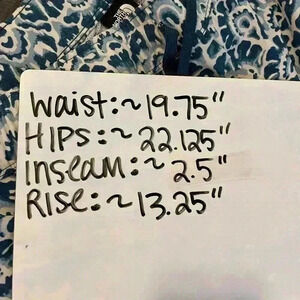 Waist:~19.75"
HIPS:~22.125"
Inseam:~2.5"
RISE:~13.25"